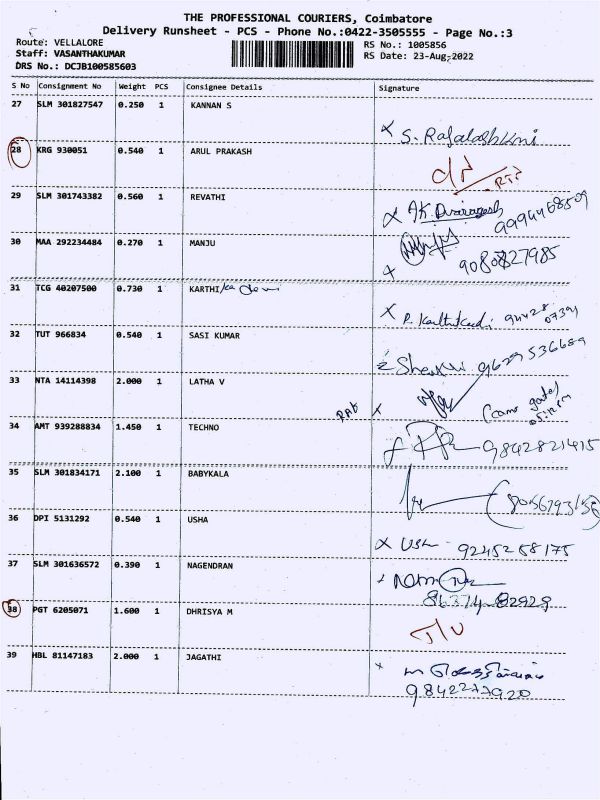 THE PROFESSIONAL COURIERS, Coimbatore
Delivery Runsheet - PCS - Phone No.:0422-3505555 - Page No.:3
Route: VELLALORE
RS No.: 1005856
Staff: VASANTHAKUMAR
RS Date: 23-Aug-2022
DRS No.: DCJB100585603
S No Consignment No Weight PCS Consignee Details Signature
27 SLM 301827547 0.250 1 KANNAN S
x S. Rajalakshmi
28 KRG 930051 0.540 1 ARUL PRAKASH
29 SLM 301743382 0.560 1 REVATHI
x
30 MAA 292234484 0.270 1 MANJU
9080827985
31 TCG 40207500 0.730 1 KARTHI ka devi
x P. Karthikadevi 94428
07391
32 TUT 966834 0.540 1 SASI KUMAR
9629536689
33 NTA 14114398 2.000 1 LATHA V
x
34 AMT 939288834 1.450 1 TECHNO
9842821415
35 SLM 301834171 2.100 1 BABYKALA
36 DPI 5131292 0.540 1 USHA
x Usha 9245258175
37 SLM 301636572 0.390 1 NAGENDRAN
86374 82929
38 PGT 6205071 1.600 1 DHRISYA M
39 HBL 81147183 2.000 1 JAGATHI
x
9842277920